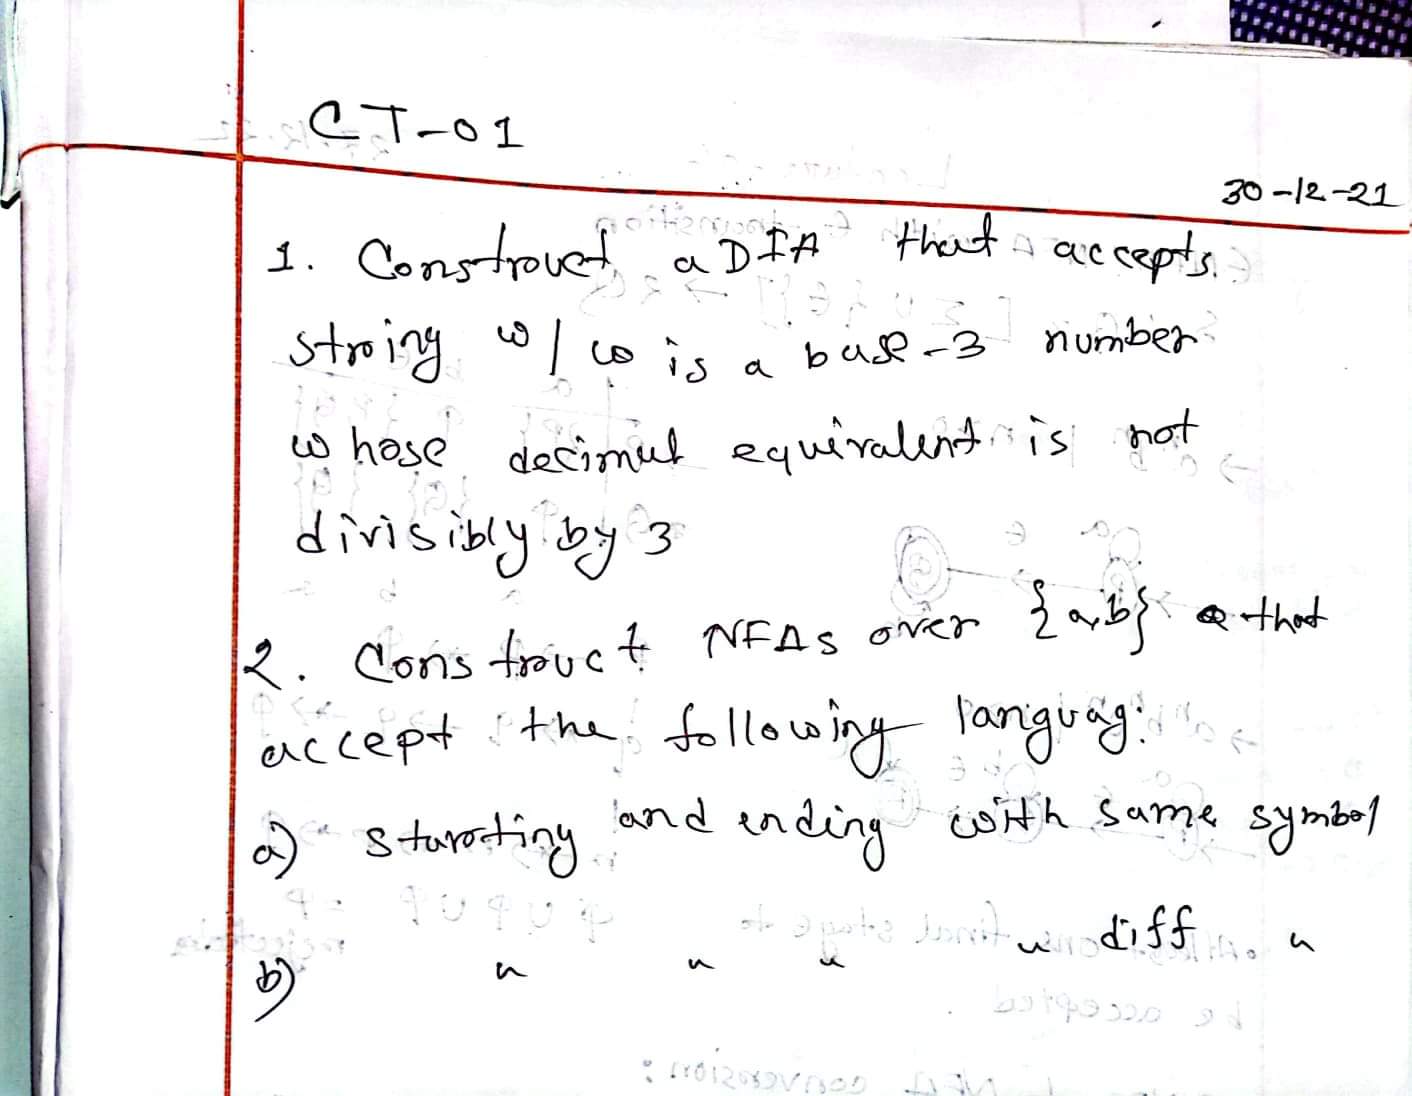 CT-01
30-12-21
1. Construct a DFA that accepts
string w/ w is a base-3 number
whose decimal equivalent is not
divisibly by 3
2. Construct NFAs over {a,b} that
accept the following languag:
a) starting and ending with same symbol
b) " " " " diff "